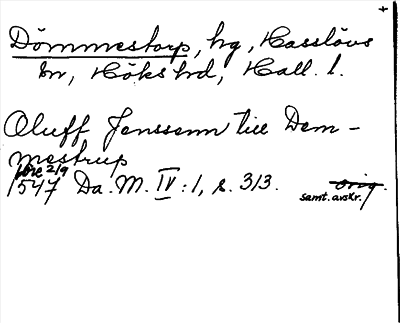 +
Dömmestorp, hg, Hasslövs
sn, Höks hd, Hall. l.
Oluff Jenssenn till Dem-
mestrup
före 2/9
1547 Da. M. IV:1, s. 313. orig.
samt. avskr.